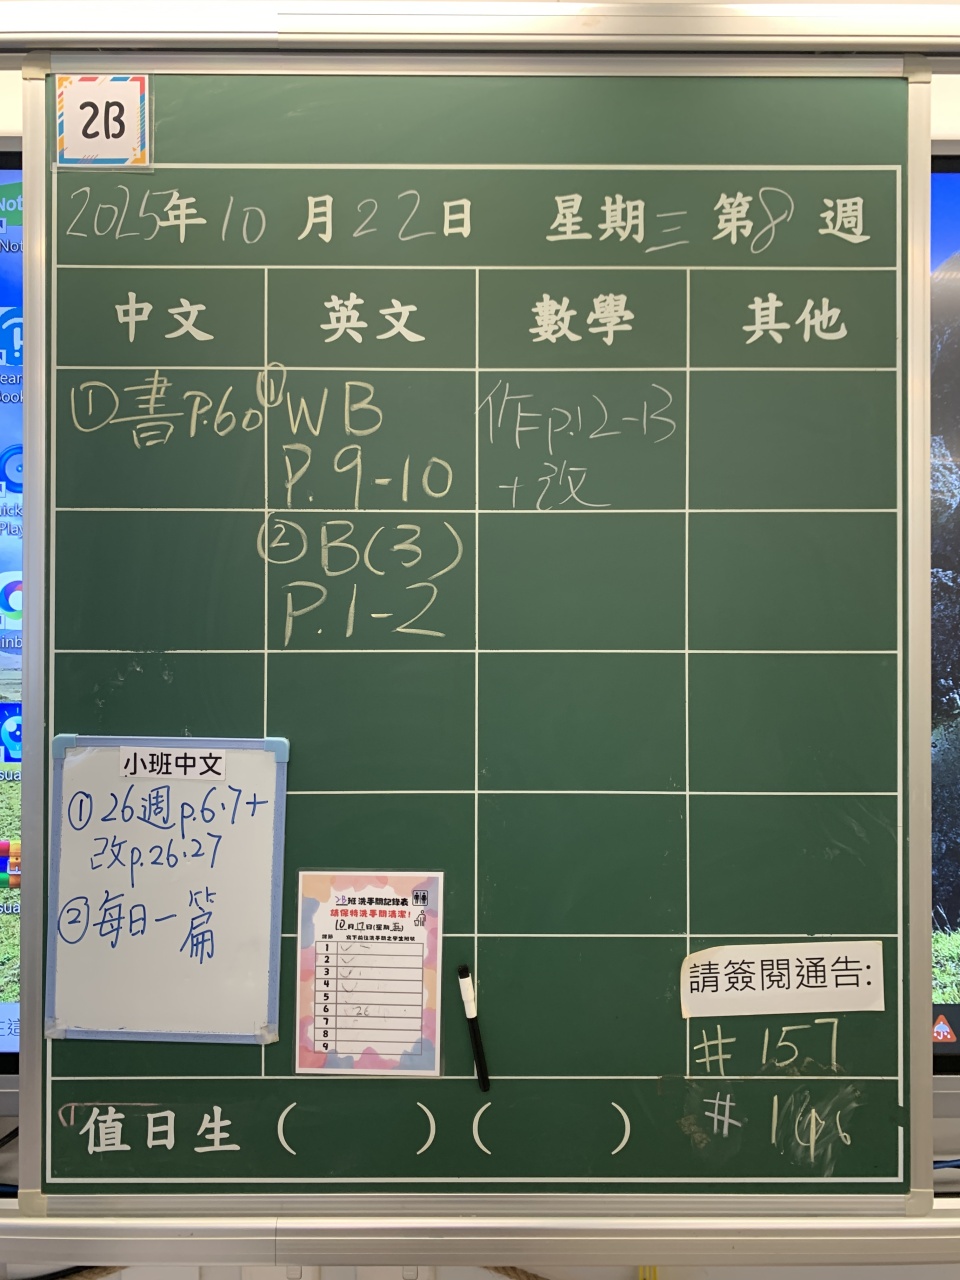 2B
2025年10月22日 星期三 第8週
中文 英文 數學 其他
①書P.60
①WB
P.9-10
②B(3)
P.1-2
作p.12-13
+改
小班中文
①26週p.6.7+
改p.26.27
②每日一篇
2B班洗手間記錄表
請保持洗手間清潔!
1
2
3
4
5
6 26
7
8
9
請簽閱通告:
#157
值日生( )( )